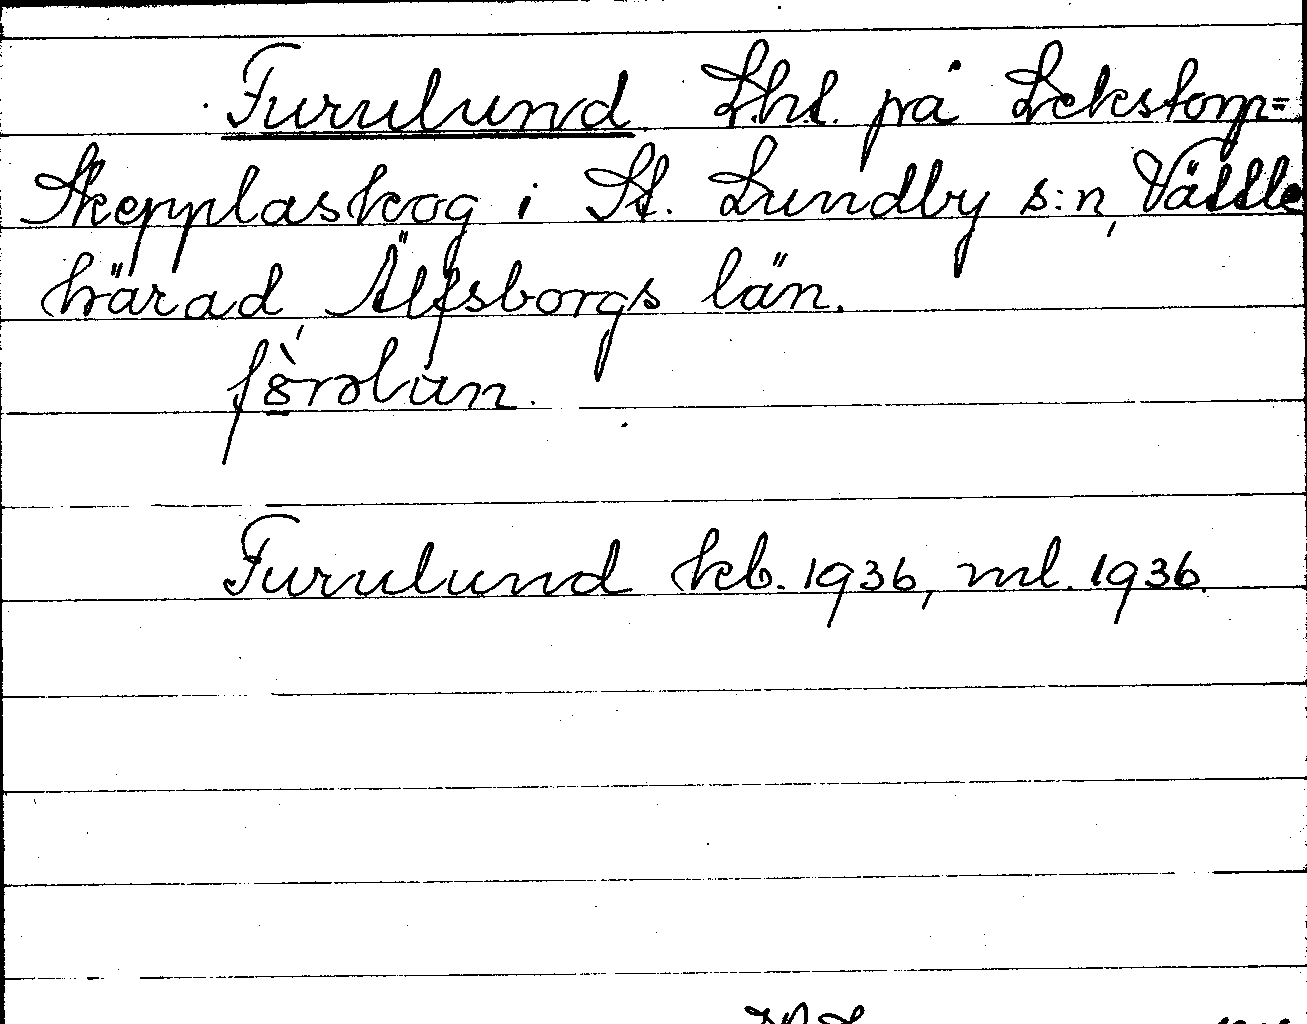 Furulund Lht. på Lekstorp=
Skepplaskog i St. Lundby s:n, Vättle
härad, Älfsborgs län.
Furulund kb. 1936, ml. 1936.